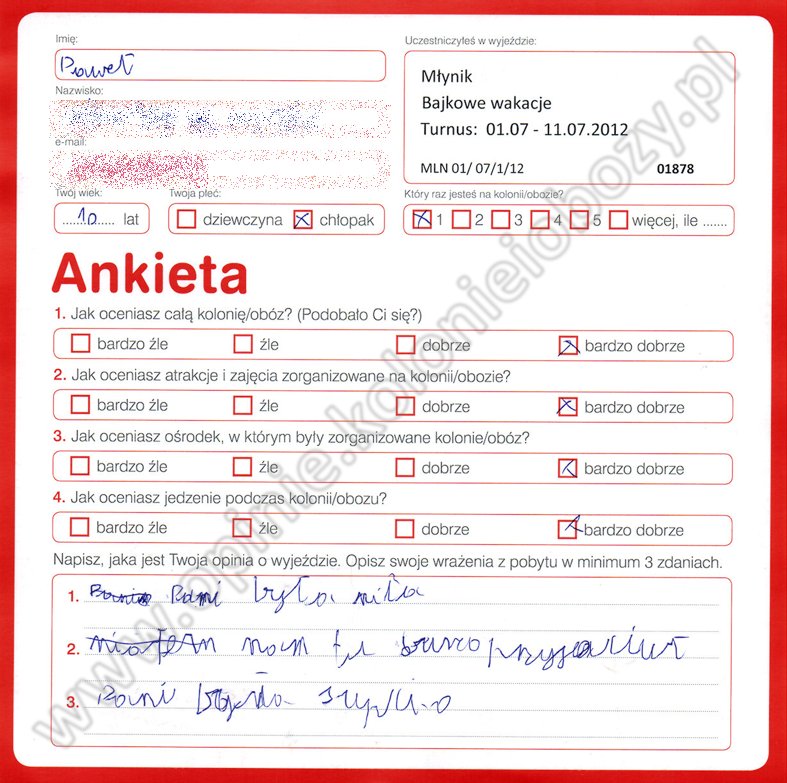 Imię:
Paweł
Uczestniczyłeś w wyjeździe:
Młynik
Bajkowe wakacje
Turnus: 01.07 - 11.07.2012
MLN 01/ 07/1/12 01878
Nazwisko:
e-mail:
Twój wiek:
10 lat
Twoja płeć:
dziewczyna chłopak
Który raz jesteś na kolonii/obozie?
1 2 3 4 5 więcej, ile .......
Ankieta
1. Jak oceniasz całą kolonię/obóz? (Podobało Ci się?)
bardzo źle źle dobrze bardzo dobrze
2. Jak oceniasz atrakcje i zajęcia zorganizowane na kolonii/obozie?
bardzo źle źle dobrze bardzo dobrze
3. Jak oceniasz ośrodek, w którym były zorganizowane kolonie/obóz?
bardzo źle źle dobrze bardzo dobrze
4. Jak oceniasz jedzenie podczas kolonii/obozu?
bardzo źle źle dobrze bardzo dobrze
Napisz, jaka jest Twoja opinia o wyjeździe. Opisz swoje wrażenia z pobytu w minimum 3 zdaniach.
1. Pani była miła
2. mam tu
3. Pani była
www.opinie.kolonieiobozy.pl